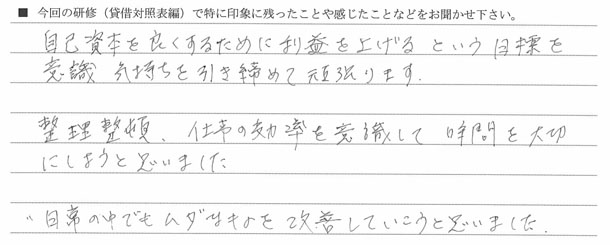 ■ 今回の研修（貸借対照表編）で特に印象に残ったことや感じたことなどをお聞かせ下さい。
自己資本を良くするために利益を上げる という目標を
意識 気持ちを引き締めて頑張ります.
整理整頓、仕事の効率を意識して 時間を大切
にしようと思いました
〃日常の中でもムダなキょを改善していこうと思いました.